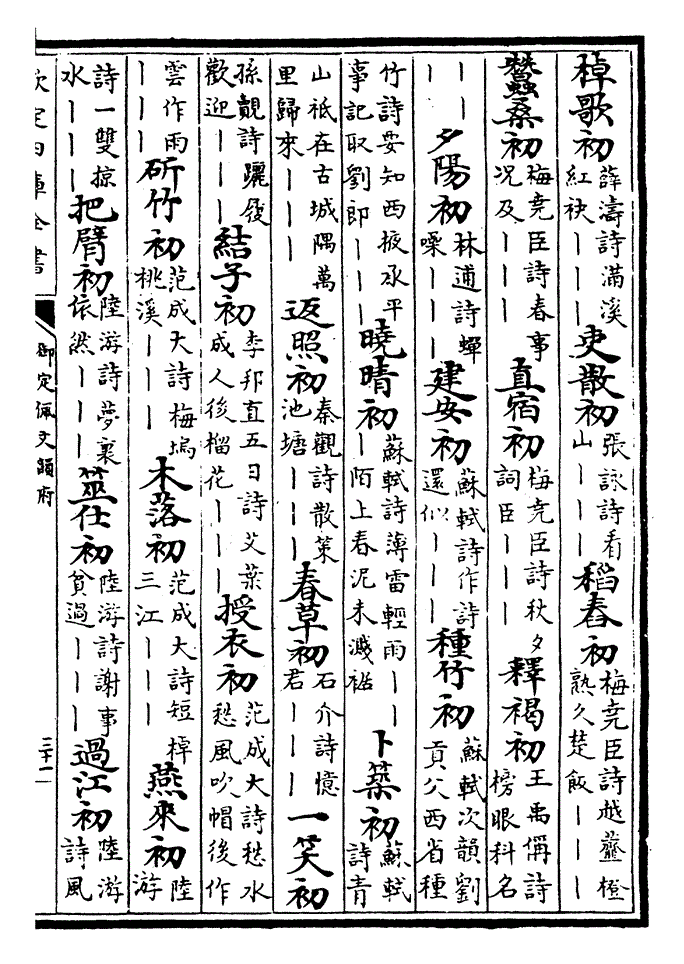 棹歌初薛濤詩滿溪紅袂｜｜｜吏散初張詠詩看山｜｜｜稻舂初梅堯臣詩越虀橙熟久楚飯｜｜
｜蠶桑初梅堯臣詩春事況及｜｜｜直宿初梅堯臣詩秋夕詞臣｜｜｜釋褐初王禹偁詩榜眼科名
｜｜｜夕陽初林逋詩蟬噪｜｜｜建安初蘇軾詩作詩還似｜｜｜種竹初蘇軾次韻劉貢父西省種
竹詩要知西掖承平事記取劉郎｜｜｜曉晴初蘇軾詩薄雷輕雨｜｜｜陌上春泥未濺裾卜築初蘇軾詩青
山祇在古城隅萬里歸來｜｜｜返照初秦觀詩散策池塘｜｜｜春草初石介詩憶君｜｜｜一笑初
孫覿詩躧履歡迎｜｜｜結子初李邦直五日詩艾葉成人後榴花｜｜｜授衣初范成大詩愁水愁風吹帽後作
雲作雨｜｜｜斫竹初范成大詩梅塢桃溪｜｜｜木落初范成大詩短棹三江｜｜｜燕來初陸游
詩一雙掠水｜｜｜把臂初陸游詩夢裏依然｜｜｜筮仕初陸游詩謝事貧過｜｜｜過江初陸游詩風
欽定四庫全書
御定佩文韻府
三十一